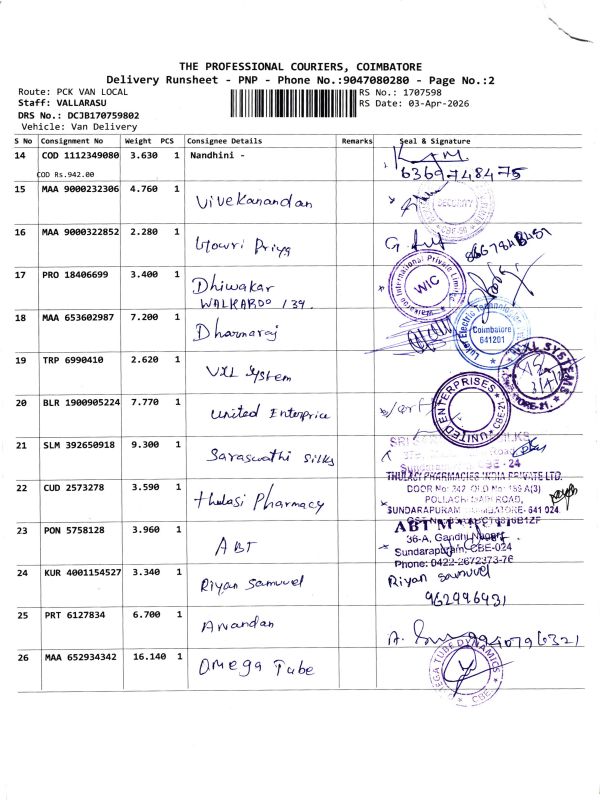 THE PROFESSIONAL COURIERS, COIMBATORE
Delivery Runsheet - PNP - Phone No.:9047080280 - Page No.:2
Route: PCK VAN LOCAL
RS No.: 1707598
Staff: VALLARASU
RS Date: 03-Apr-2026
DRS No.: DCJB170759802
Vehicle: Van Delivery
S No Consignment No Weight PCS Consignee Details Remarks Seal & Signature
14 COD 1112349080 3.630 1 Nandhini -
COD Rs.942.00
6369748475
15 MAA 9000232306 4.760 1 Vivekanandan
SECURITY
16 MAA 9000322852 2.280 1 Gowri Priya
17 PRO 18406699 3.400 1 Dhiwakar
WALKAROO 139.
Walkaroo International Private Limited
WIC
18 MAA 653602987 7.200 1 Dharmaraj
Coimbatore
641201
19 TRP 6990410 2.620 1 VXL System
VXL SYSTEMS
20 BLR 1900905224 7.770 1 United Enterprice
UNITED ENTERPRISES
CBE-21
21 SLM 392650918 9.300 1 Saraswathi Silks
SILKS
Road
CBE - 24
22 CUD 2573278 3.590 1 Thulasi Pharmacy
THULASI PHARMACIES INDIA PRIVATE LTD.
DOOR No: 242, OLD No: 159 A(3)
POLLACHI MAIN ROAD,
SUNDARAPURAM, COIMBATORE- 641 024.
23 PON 5758128 3.960 1 ABT
ABT
36-A, Gandhi Nagar,
Sundarapuram, CBE-024
Phone: 0422-2672373-76
24 KUR 4001154527 3.340 1 Riyan Samuvel
Riyan Samuvel
962996931
25 PRT 6127834 6.700 1 Anandan
26 MAA 652934342 16.140 1 Omega Tube
OMEGA TUBE DYNAMICS
CBE